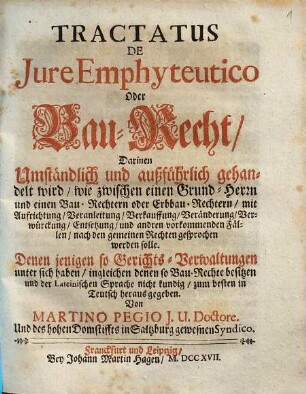 1
TRACTATUS
DE
Jure Emphyteutico
Oder
Bau-Recht/
Darinen
Umständlich und außführlich gehan-
delt wird / wie zwischen einen Grund-Herrn
und einen Bau-Rechtern oder Erbbau-Rechtern / mit
Aufrichtung / Veranleitung / Verkauffung / Veränderung / Ver-
würckung / Entsetzung / und andern vorkommenden Fäl-
len / nach den gemeinen Rechten gesprochen
werden solle.
Denen jenigen so Gerichts-Verwaltungen
unter sich haben / ingleichen denen so Bau-Rechte besitzen
und der Lateinischen Sprache nicht kundig / zum besten in
Teutsch heraus gegeben.
Von
MARTINO PEGIO J. U. Doctore.
Und des hohen Domstiffts in Saltzburg gewesnen Syndico.
Franckfurt und Leipzig /
Bey Johann Martin Hagen / M. DCC XVII.